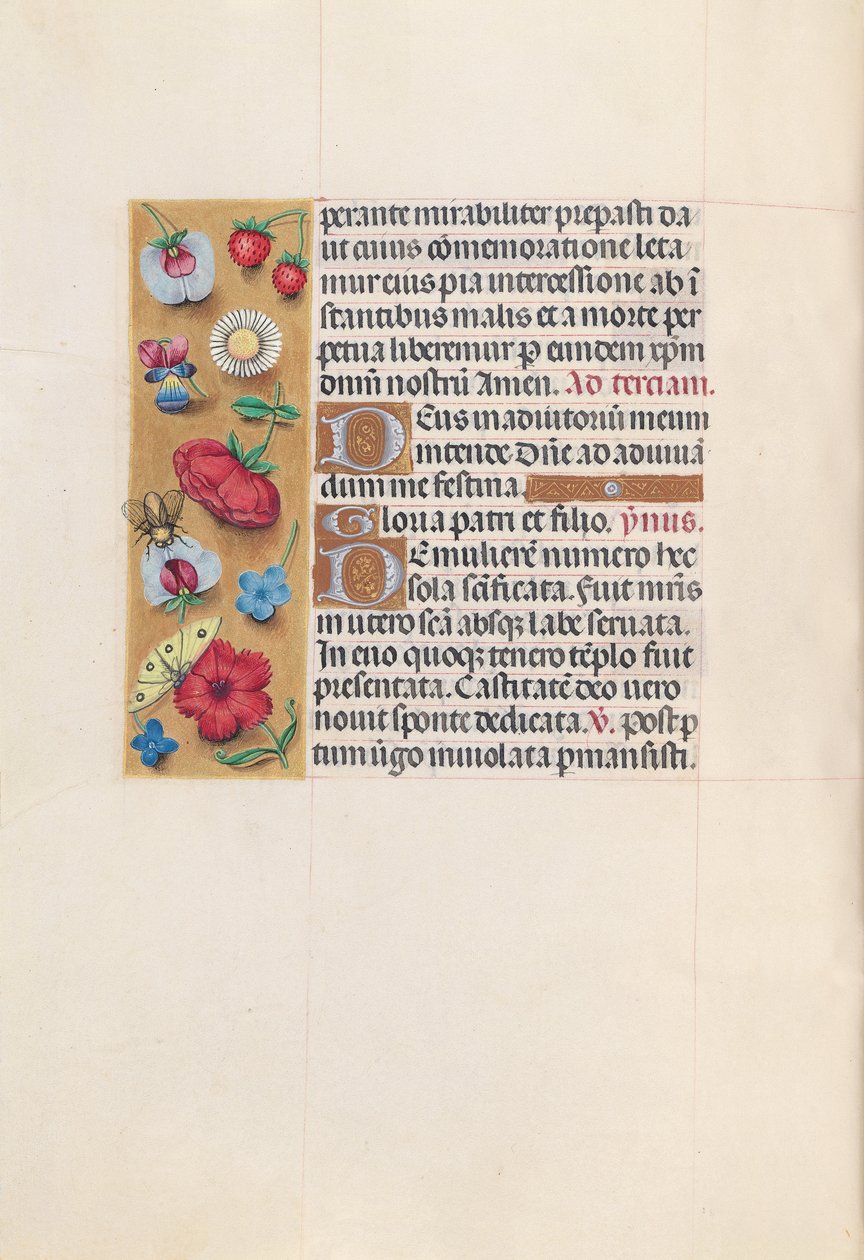 perante mirabiliter preparasti da
ut cuius cōmemoratione leta
mur eius pia intercessione ab ī
stantibus malis et a morte per
petua liberemur ꝑ eundem xp̄m
dnm̄ nostrū Amen. Ad terciam.
Deus in adiutoriū meum
intende Dn̄e ad adiuuā
dum me festina.
Gloria patri et filio. ẏnus.
Hemulierē numero hec
sola sc̄ificata. Fuit mr̄is
in utero scā absqꝫ labe seruata.
In euo quoqꝫ tenero tēplo fuit
presentata. Castitatē deo uero
nouit sponte dedicata. V̄. post ꝑ
tum ūgo inuiolata ꝑmansisti.